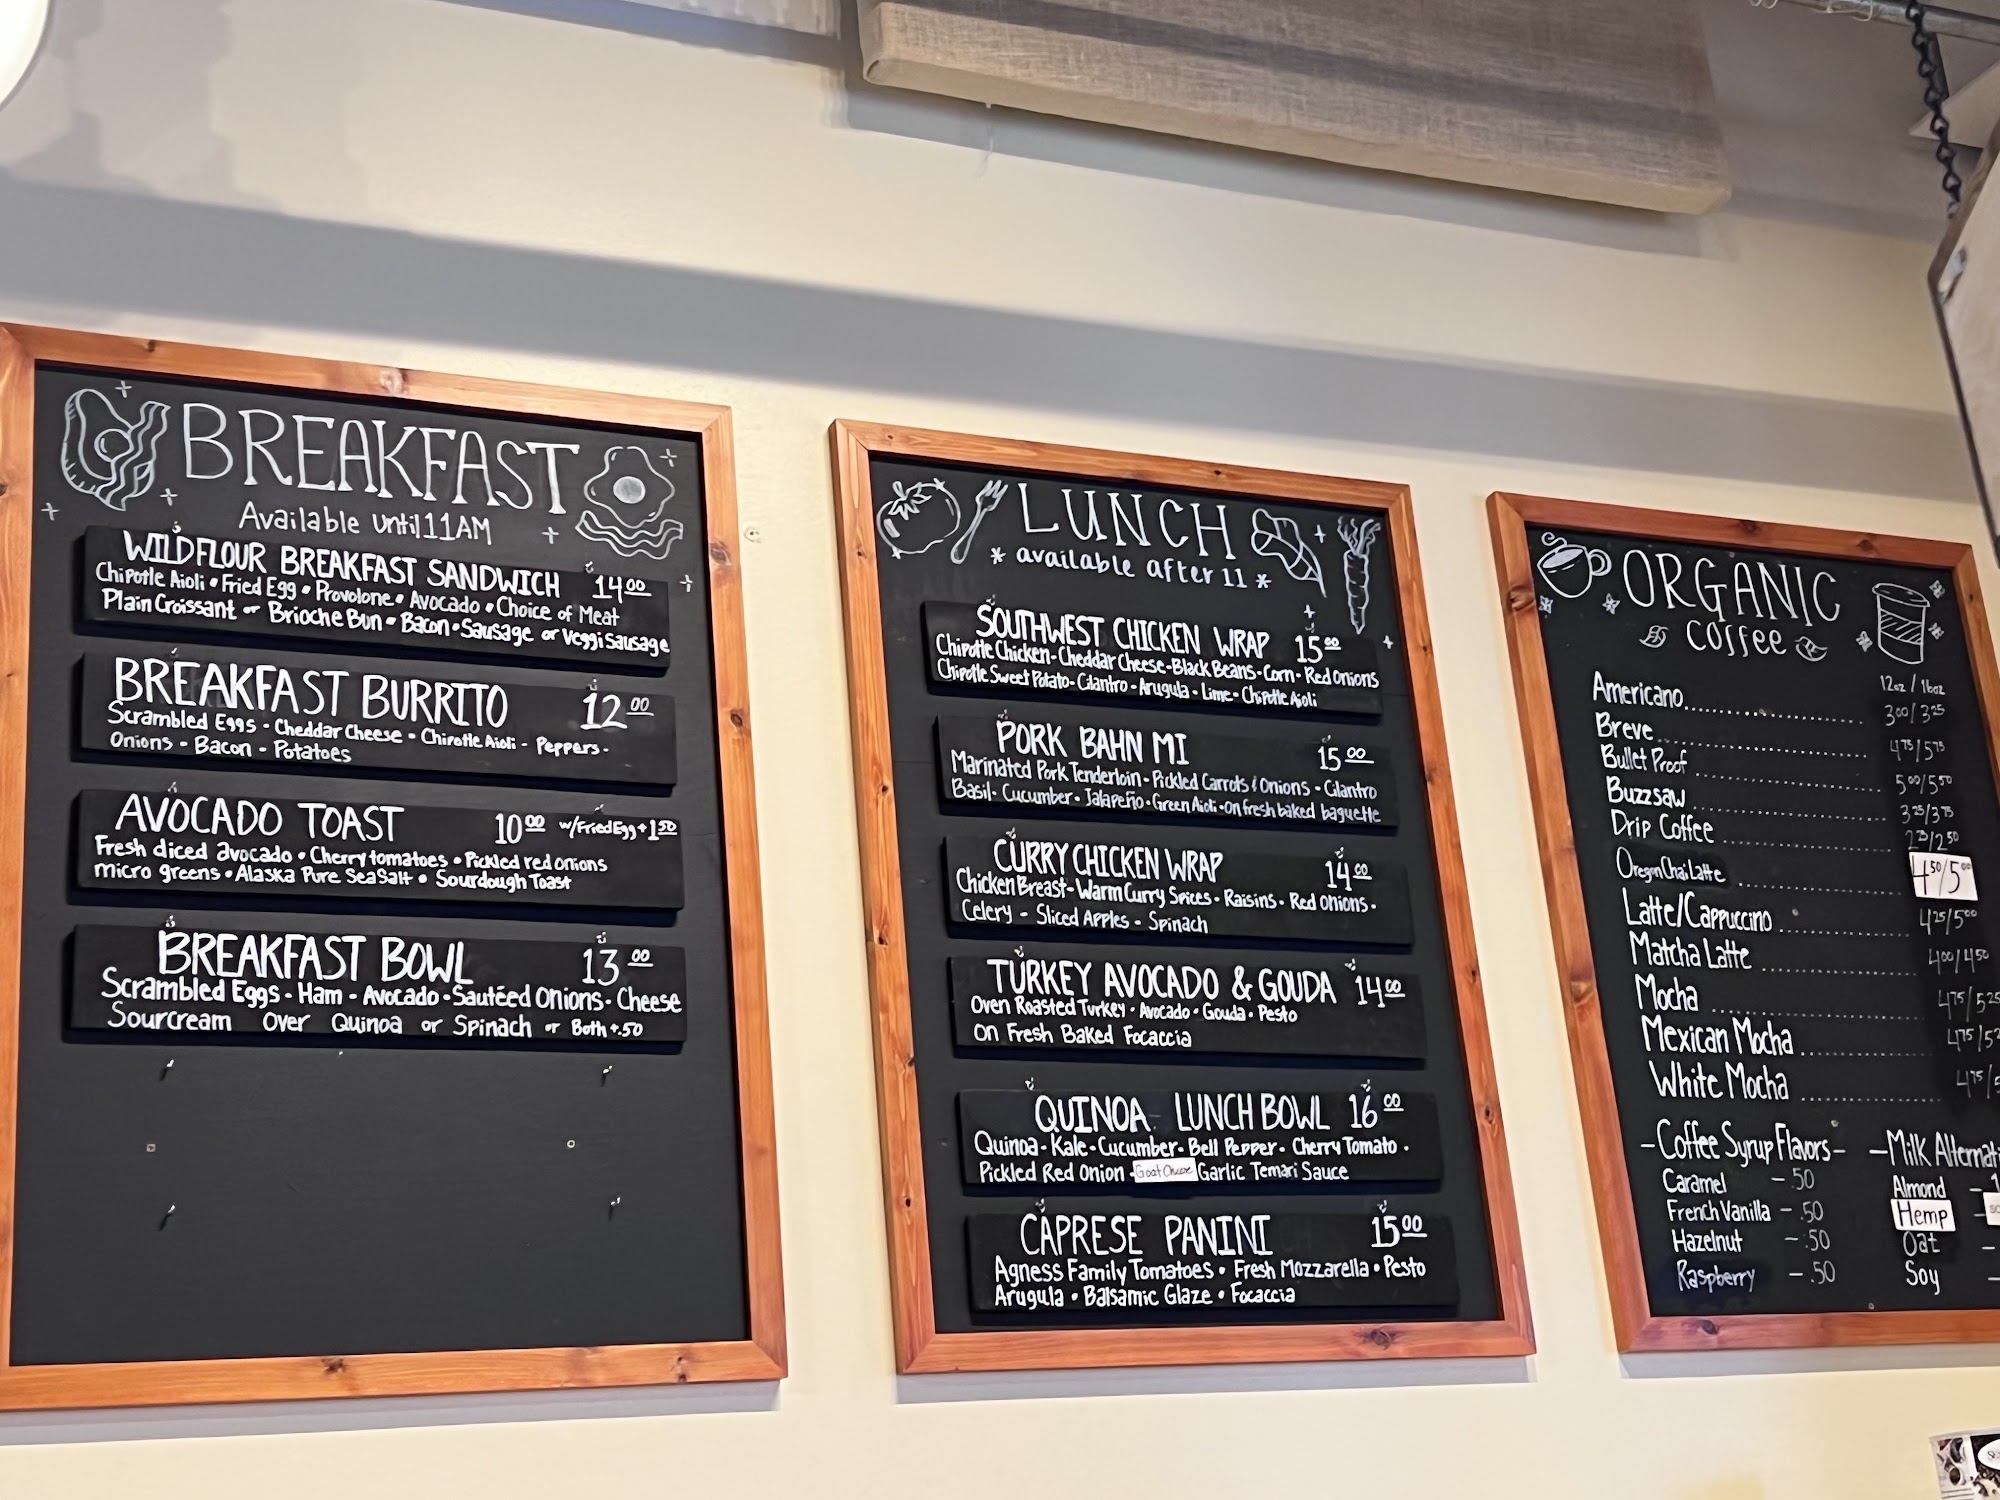 BREAKFAST
Available until 11AM
WILDFLOUR BREAKFAST SANDWICH 14.00
Chipotle Aioli • Fried Egg • Provolone • Avocado • Choice of Meat
Plain Croissant or Brioche Bun • Bacon • Sausage or Veggi Sausage
BREAKFAST BURRITO 12.00
Scrambled Eggs - Cheddar Cheese - Chipotle Aioli - Peppers -
Onions - Bacon - Potatoes
AVOCADO TOAST 10.00 w/Fried Egg + 1.50
Fresh diced avocado • Cherry tomatoes • Pickled red onions
micro greens • Alaska Pure Sea Salt • Sourdough Toast
BREAKFAST BOWL 13.00
Scrambled Eggs - Ham - Avocado - Sautéed Onions - Cheese
Sourcream over Quinoa or Spinach or Both +.50
LUNCH
* available after 11 *
SOUTHWEST CHICKEN WRAP 15.00
Chipotle Chicken - Cheddar Cheese - Black Beans - Corn - Red Onions
Chipotle Sweet Potato - Cilantro - Arugula - Lime - Chipotle Aioli
PORK BAHN MI 15.00
Marinated Pork Tenderloin - Pickled Carrots & Onions - Cilantro
Basil - Cucumber - Jalapeño - Green Aioli - on fresh baked baguette
CURRY CHICKEN WRAP 14.00
Chicken Breast - Warm Curry Spices - Raisins - Red Onions -
Celery - Sliced Apples - Spinach
TURKEY AVOCADO & GOUDA 14.00
Oven Roasted Turkey - Avocado - Gouda - Pesto
on Fresh Baked Focaccia
QUINOA LUNCH BOWL 16.00
Quinoa - Kale - Cucumber - Bell Pepper - Cherry Tomato -
Pickled Red Onion - Goat Cheese Garlic Temari Sauce
CAPRESE PANINI 15.00
Agness Family Tomatoes • Fresh Mozzarella • Pesto
Arugula • Balsamic Glaze • Focaccia
ORGANIC
coffee
12oz / 16oz
Americano 3.00/3.25
Breve 4.75/5.75
Bullet Proof 5.00/5.50
Buzzsaw 3.25/3.75
Drip Coffee 2.25/2.50
Oregon Chai Latte 4.50/5.00
Latte/Cappuccino 4.25/5.00
Matcha Latte 4.00/4.50
Mocha 4.75/5.25
Mexican Mocha 4.75/5.2
White Mocha 4.75/5
- Coffee Syrup Flavors -
Caramel - .50
French Vanilla - .50
Hazelnut - .50
Raspberry - .50
- Milk Alternati
Almond - 1
Hemp -
Oat -
Soy -